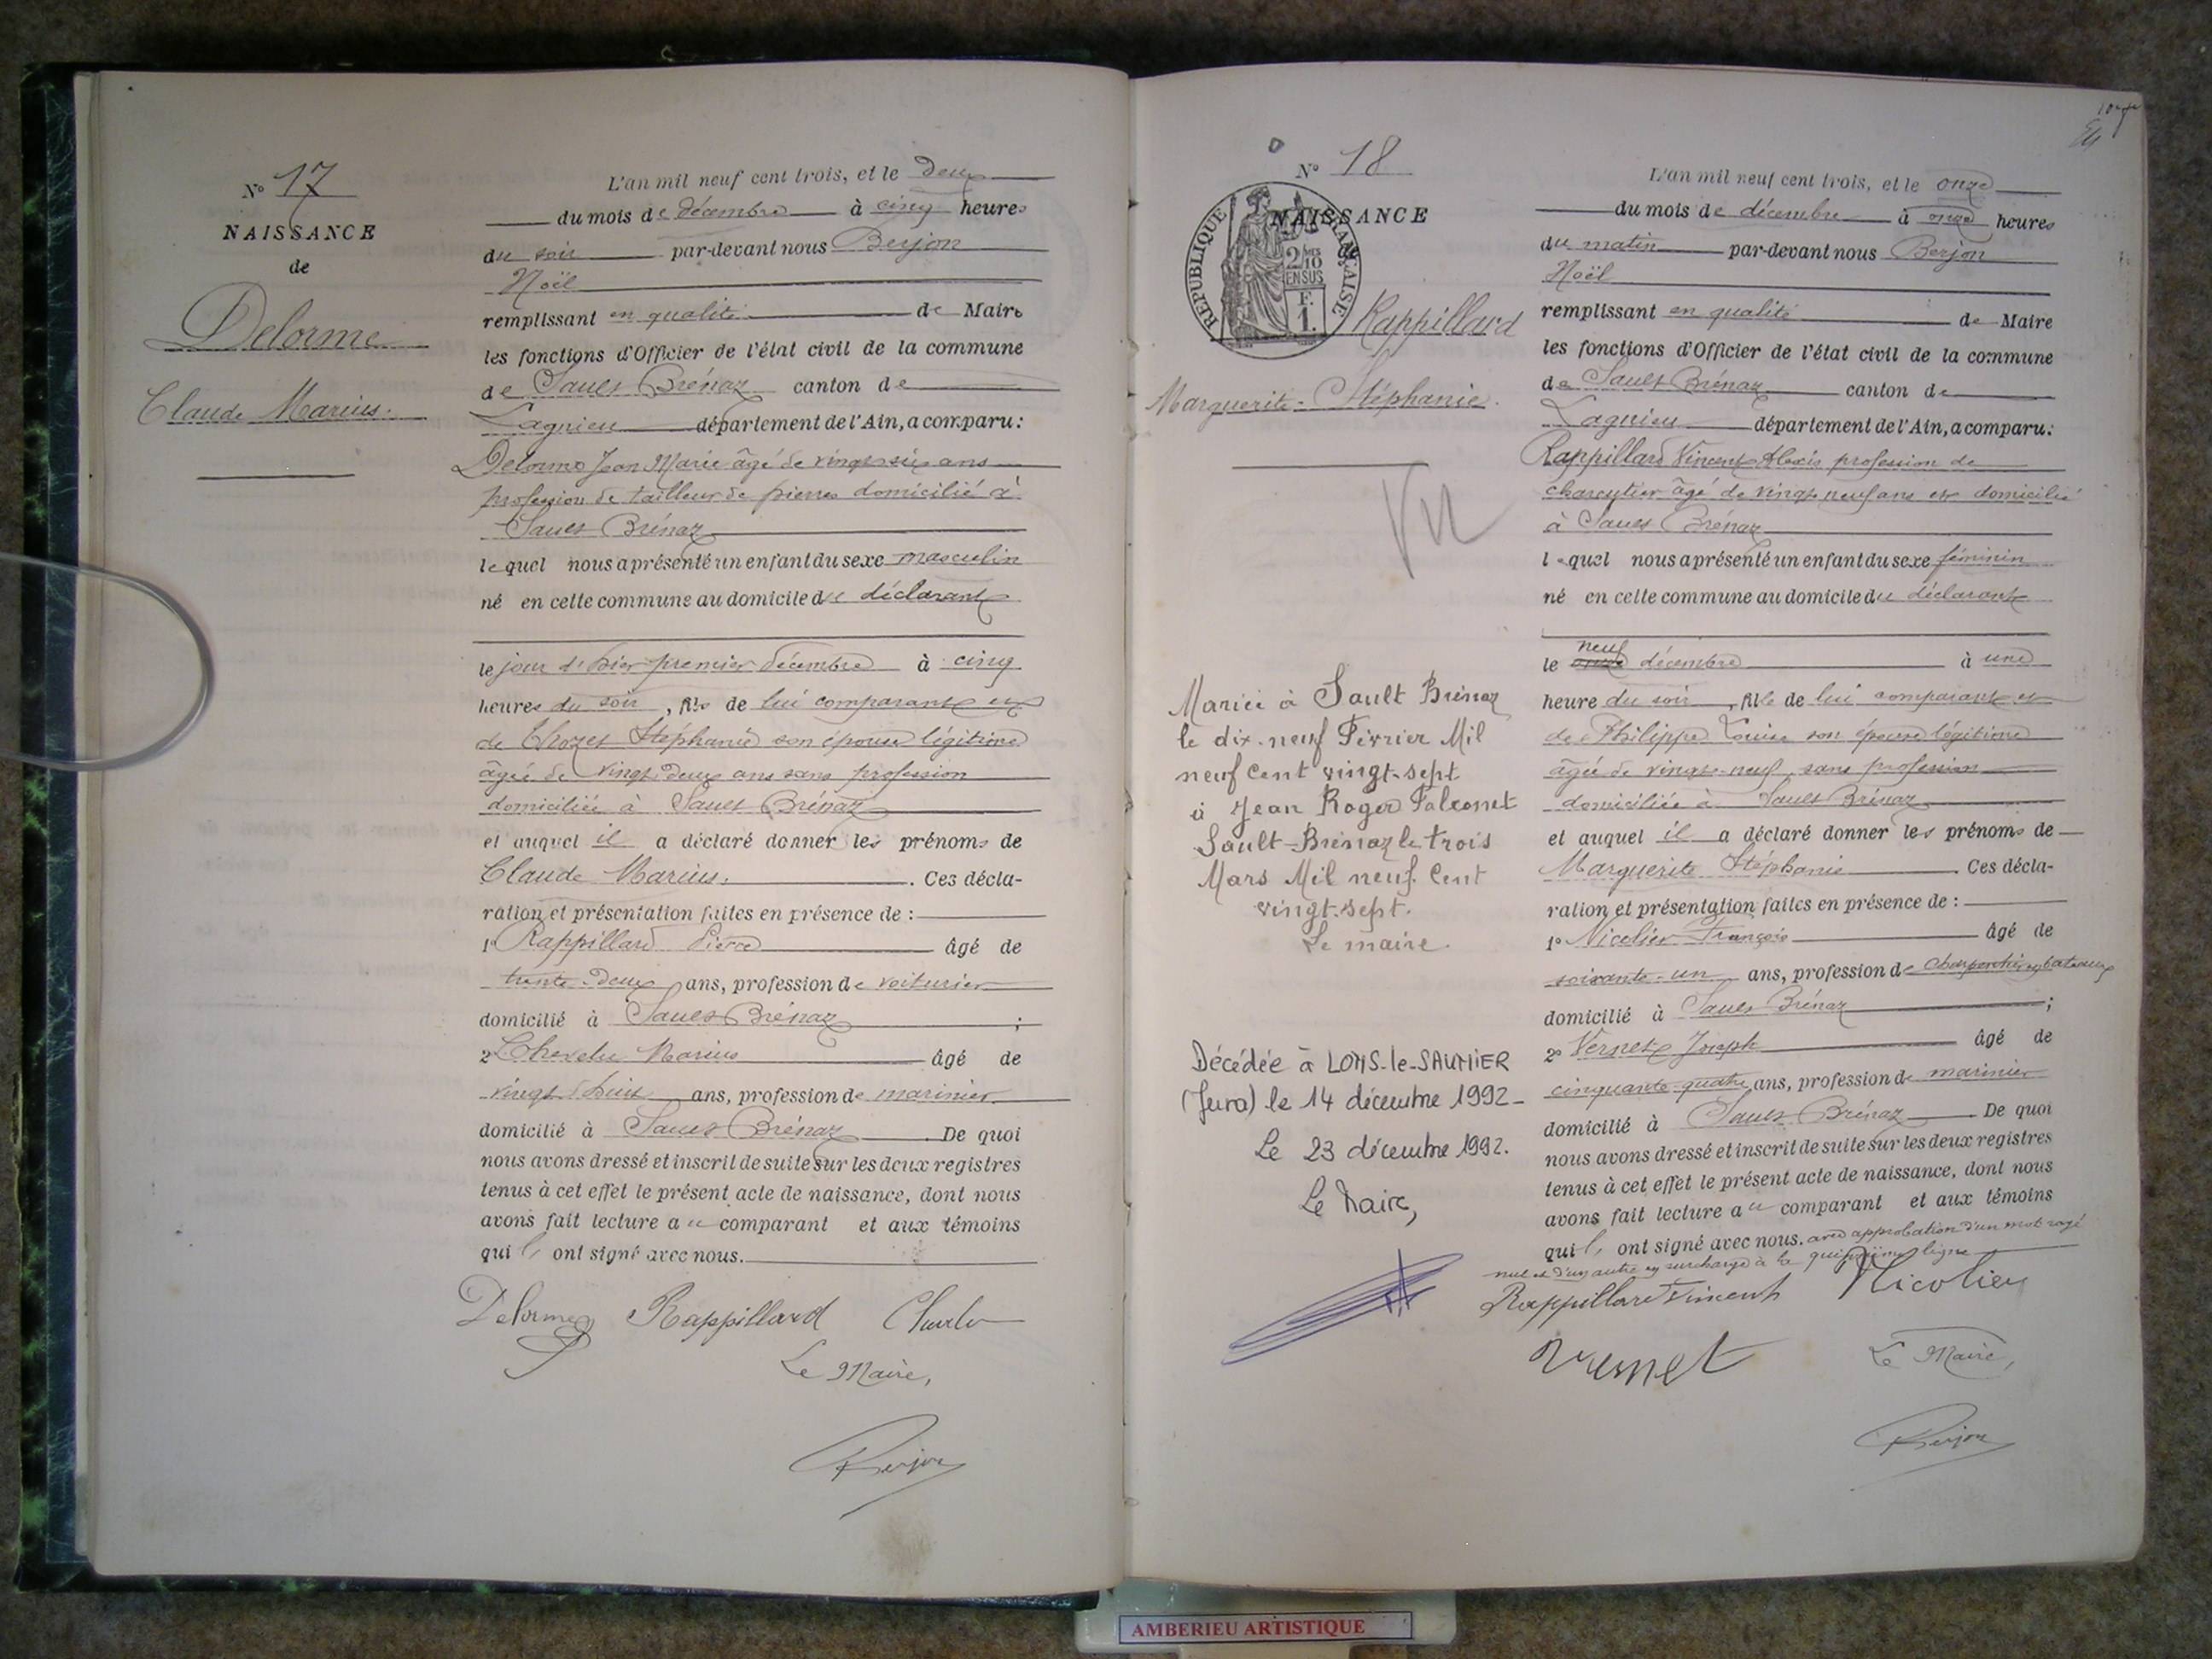 N° 17
NAISSANCE
de
Delorme
Claude Marius.
L'an mil neuf cent trois, et le deux
du mois de décembre à cinq heures
du soir par-devant nous Berjon
Noël
remplissant en qualité de Maire
les fonctions d'Officier de l'état civil de la commune
de Sault Brénaz canton de
Lagnieu département de l'Ain, a comparu:
Delorme Jean Marie âgé de vingt six ans
profession de tailleur de pierres domicilié à
Sault Brénaz
lequel nous a présenté un enfant du sexe masculin
né en cette commune au domicile du déclarant
le jour d'hier premier décembre à cinq
heures du soir, fils de lui comparant et
de Chozet Stéphanie son épouse légitime
âgée de vingt deux ans sans profession
domiciliée à Sault Brénaz
et auquel il a déclaré donner les prénoms de
Claude Marius. Ces décla-
ration et présentation faites en présence de :
1° Rappillard Pierre âgé de
trente deux ans, profession de voiturier
domicilié à Sault Brénaz ;
2° Chevelu Marius âgé de
vingt huit ans, profession de marinier
domicilié à Sault Brénaz De quoi
nous avons dressé et inscrit de suite sur les deux registres
tenus à cet effet le présent acte de naissance, dont nous
avons fait lecture au comparant et aux témoins
qui ont signé avec nous.
Delorme Rappillard
Le Maire,
Berjon
N° 18
NAISSANCE
REPUBLIQUE FRANÇAISE
2/10 EN SUS
F. 1.
Rappillard
Marguerite-Stéphanie.
Vu
Mariée à Sault Brénaz
le dix-neuf Février Mil
neuf cent vingt-sept
à Jean Roger Falconnet
Sault-Brénaz le trois
Mars Mil neuf Cent
vingt-sept.
Le maire.
Décédée à LONS-le-SAUNIER
(Jura) le 14 décembre 1992-
Le 23 décembre 1992.
Le Maire,
L'an mil neuf cent trois, et le onze
du mois de décembre à onze heures
du matin par-devant nous Berjon
Noël
remplissant en qualité de Maire
les fonctions d'Officier de l'état civil de la commune
de Sault Brénaz canton de
Lagnieu département de l'Ain, a comparu:
Rappillard Vincent Alexis profession de
charcutier âgé de vingt neuf ans et domicilié
à Sault Brénaz
lequel nous a présenté un enfant du sexe féminin
né en cette commune au domicile du déclarant
neuf
le onze décembre à une
heure du soir, fille de lui comparant et
de Philippe Louise son épouse légitime
âgée de vingt-neuf, sans profession
domiciliée à Sault Brénaz
et auquel il a déclaré donner les prénoms de
Marguerite Stéphanie Ces décla-
ration et présentation faites en présence de :
1° Nicolier François âgé de
soixante-un ans, profession de charpentier en bateaux
domicilié à Sault Brénaz ;
2° Vernet Joseph âgé de
cinquante-quatre ans, profession de marinier
domicilié à Sault Brénaz De quoi
nous avons dressé et inscrit de suite sur les deux registres
tenus à cet effet le présent acte de naissance, dont nous
avons fait lecture au comparant et aux témoins
qui ont signé avec nous. avec approbation d'un mot rayé
nul et d'un autre en surcharge à la quinzième ligne
Rappillard Vincent Nicolier
Vernet
Le Maire,
Berjon
AMBERIEU ARTISTIQUE